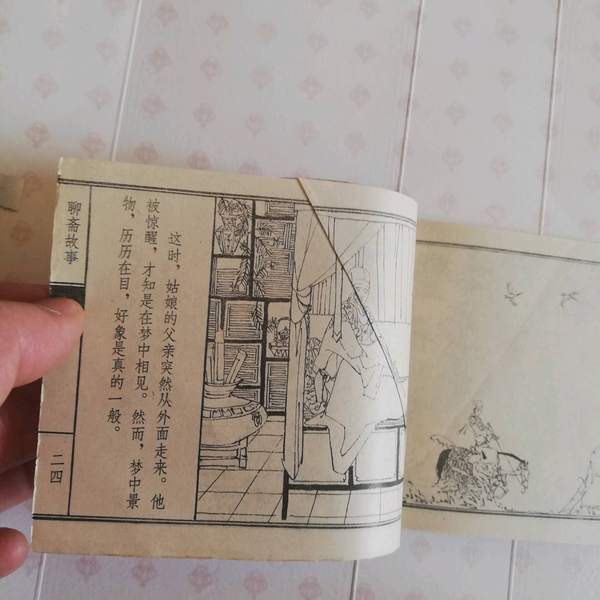 聊斋故事
这时，姑娘的父亲突然从外面走来。他
被惊醒，才知是在梦中相见。然而，梦中景
物，历历在目，好象是真的一般。
二四